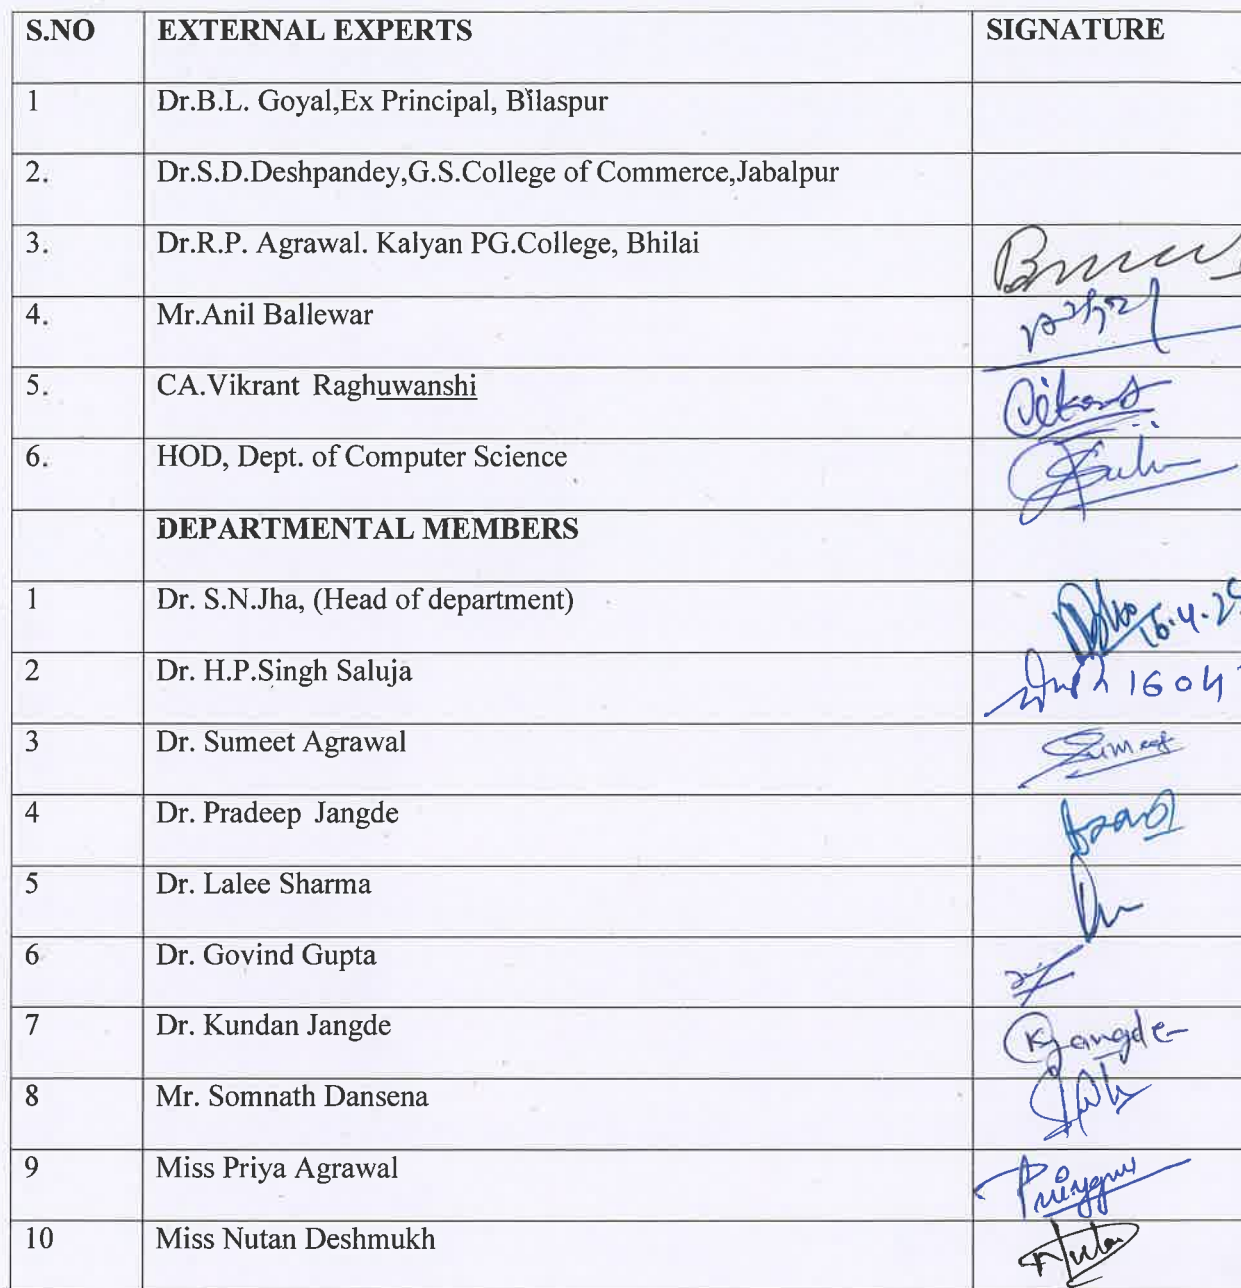 S.NO EXTERNAL EXPERTS SIGNATURE
1 Dr.B.L. Goyal,Ex Principal, Bilaspur
2. Dr.S.D.Deshpandey,G.S.College of Commerce,Jabalpur
3. Dr.R.P. Agrawal. Kalyan PG.College, Bhilai
4. Mr.Anil Ballewar
5. CA.Vikrant Raghuwanshi
6. HOD, Dept. of Computer Science
DEPARTMENTAL MEMBERS
1 Dr. S.N.Jha, (Head of department)
2 Dr. H.P.Singh Saluja 1604
3 Dr. Sumeet Agrawal Sumeet
4 Dr. Pradeep Jangde
5 Dr. Lalee Sharma
6 Dr. Govind Gupta
7 Dr. Kundan Jangde KJangde
8 Mr. Somnath Dansena
9 Miss Priya Agrawal
10 Miss Nutan Deshmukh